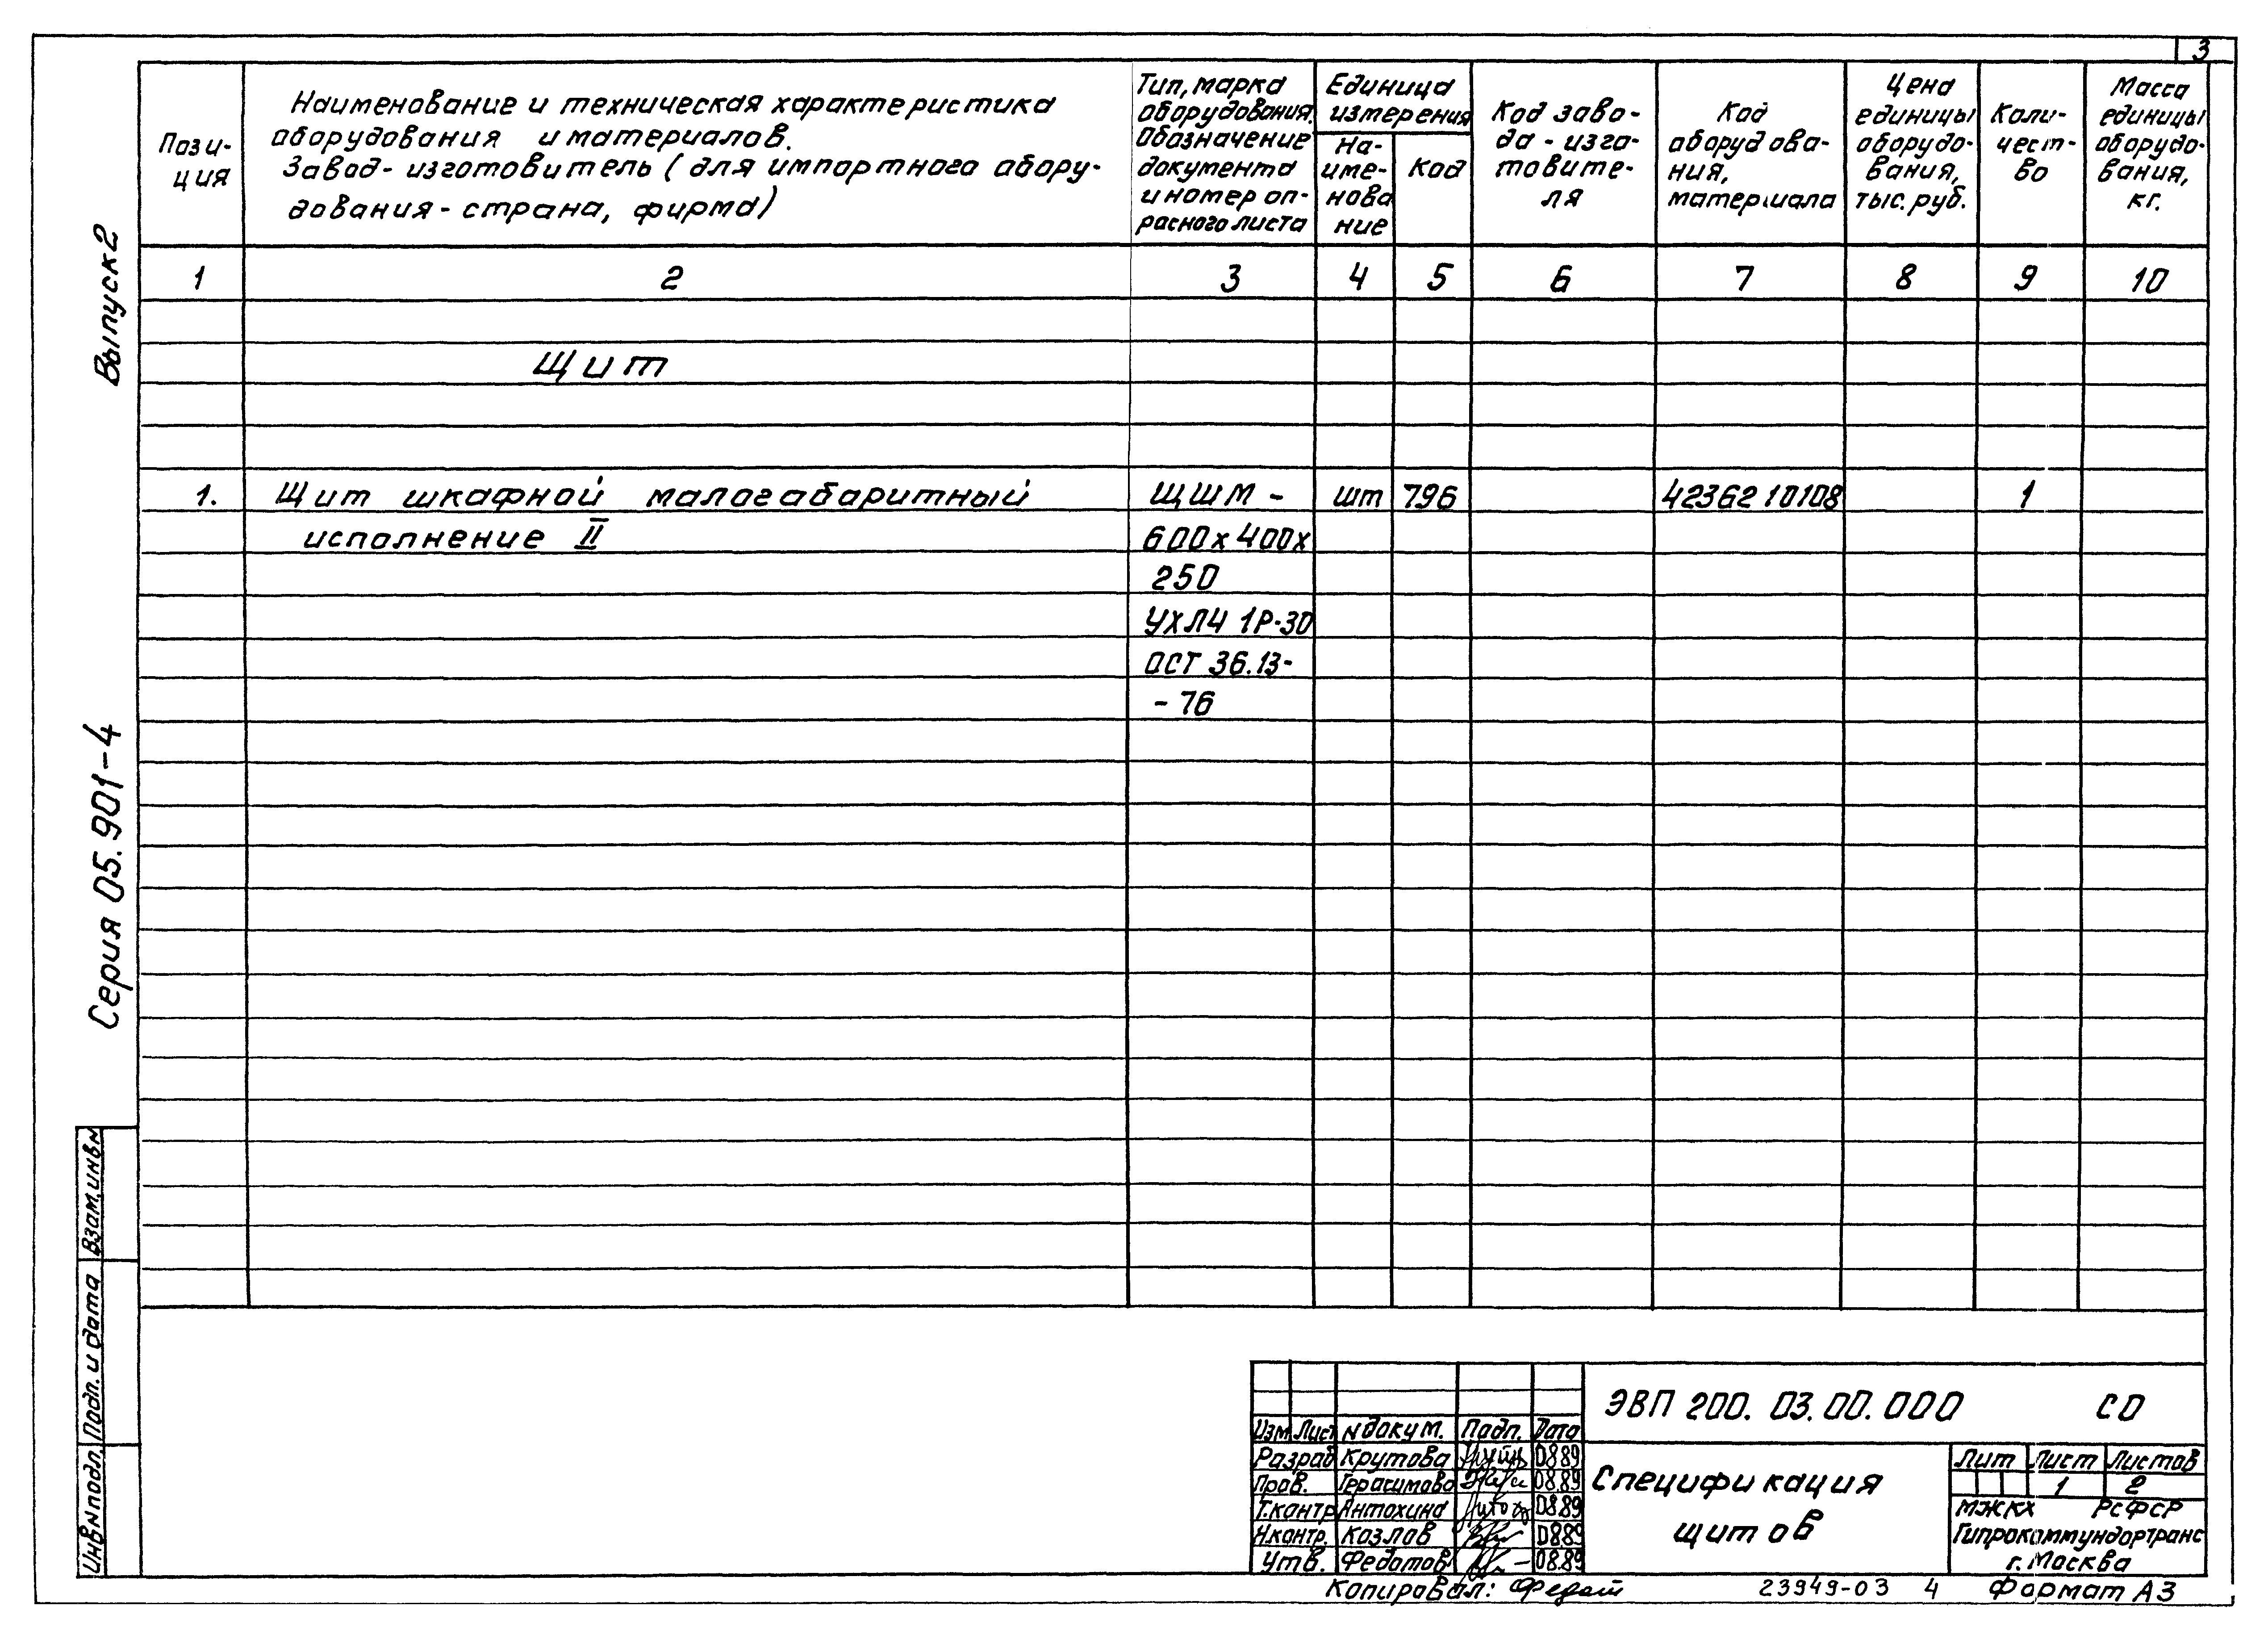 3
Пози-
ция
Наименование и техническая характеристика
оборудования и материалов.
Завод-изготовитель (для импортного обору-
дования-страна, фирма)
Тип, марка
оборудования.
Обозначение
документа
и номер оп-
расного листа
Единица
измерения
На-
име-
нова
ние
Код
Код заво-
да-изго-
товите-
ля
Код
оборудова-
ния,
материала
Цена
единицы
оборудо-
вания,
тыс. руб.
Коли-
чест-
во
Масса
единицы
оборудо-
вания,
кг.
1 2 3 4 5 6 7 8 9 10
Щит
1. Щит шкафной малогабаритный ЩШМ- шт 796 4236210108 1
исполнение II 600х400х
250
УХЛ4 1Р-30
ОСТ 36.13-
-76
Выпуск 2
Серия 05.901-4
Взам. инв N
Подп. и дата
Инв N подл.
ЭВП 200.03.00.000 СО
Изм Лист N докум. Подп. Дата
Разраб Крутова 08.89
Пров. Герасимова 08.89
Т.контр Антохина 08.89
Н.контр. Козлов 08.89
Утв. Федотов 08.89
Спецификация
щитов
Лит Лист Листов
1 2
МЖКХ РСФСР
Гипрокоммундортранс
г. Москва
Копировал: 23949-03 4 Формат А3